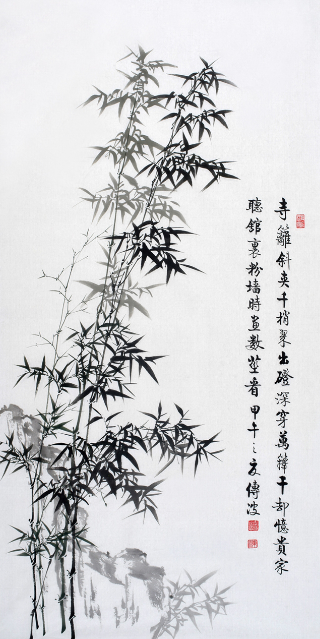 寺籬斜夾千梢翠出磴深穿萬籜干却憶貴家
聽館裏粉墻時畫數莖看甲午之夏傳波